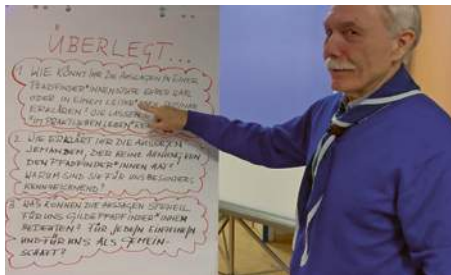 ÜBERLEGT...
1 WIE KÖNNT IHR DIE AUSSAGEN IN EINER
PFADFINDER*INNEN
ODER IN EINEM
ERKLÄREN? DIE LASSEN
"IM PRAKTISCHEN LEBEN"
2 WIE ERKLÄRT IHR DIE AUSSAGEN
JEMANDEM, DER KEINE AHNUNG VON
DEN PFADFINDER*INNEN HAT?
WARUM SIND SIE FÜR UNS BESONDERS
KENNZEICHNEND?
3 WAS KÖNNEN DIE AUSSAGEN SPEZIELL
FÜR UNS GILDEPFADFINDER*INNEN
BEDEUTEN? FÜR JEDE/N EINZELNE/N
UND FÜR UNS ALS GEMEIN-
SCHAFT?